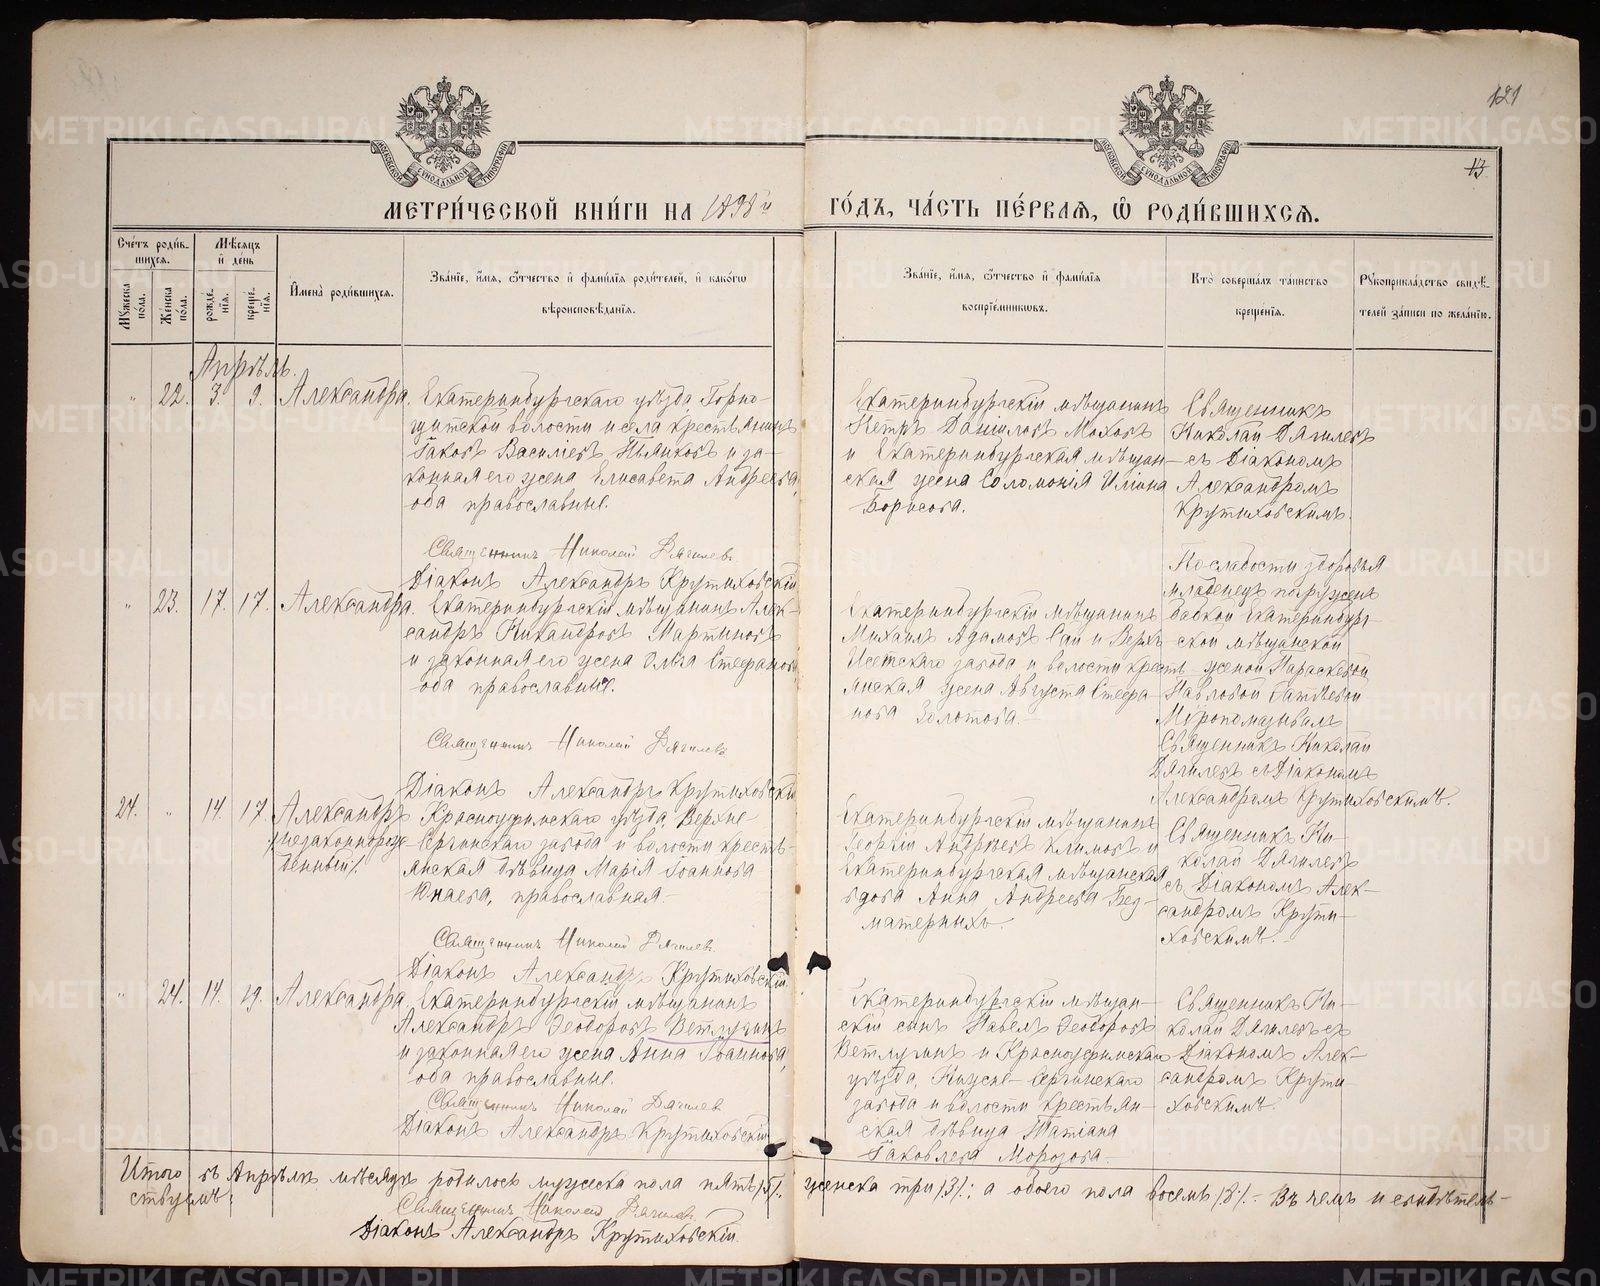 121
13.
МЕТРИ́ЧЕСКОЙ КНИ́ГИ НА 1898й ГО́ДЪ, ЧА́СТЬ ПЕ́РВАѦ, Ѽ РОДИ́ВШИХСѦ.
Сче́тъ роди́вшихсѧ.
Мꙋжеска по́ла.
Же́нска по́ла.
Мѣ́сѧцъ и҆ де́нь
рожде́нїѧ.
креще́нїѧ.
И҆мена̀ роди́вшихсѧ.
Зва́нїе, и҆́мѧ, ѻ҆́тчество и҆ фами́лїѧ роди́телей, и҆ како́гѡ
вѣроисповѣ́данїѧ.
Зва́нїе, и҆́мѧ, ѻ҆́тчество и҆ фами́лїѧ
воспрїе́мникѡвъ.
Кто̀ соверша́лъ та́инство
креще́нїѧ.
Рꙋкоприкла́дство свидѣ́-
телей за́писи по жела́нїю.
Апрѣль.
" 22. 3. 9. Александра.
Екатеринбургскаго уѣзда, Горно-
щитской волости и села крестьянинъ
Іаковъ Василіевъ Пьянковъ и за-
конная его жена Елисавета Андреева,
оба православные.
Священникъ Николай Дягилевъ
Діаконъ Александръ Крутиховскій
Екатеринбургскій мѣщанинъ
Петръ Даниловъ Моховъ
и Екатеринбургская мѣщан-
ская жена Соломонія Ильина
Борисова.
Священникъ
Николай Дягилевъ
съ Діакономъ
Александромъ
Крутиховскимъ.
" 23. 17. 17. Александра.
Екатеринбургскій мѣщанинъ Алек-
сандръ Никандровъ Мартиновъ
и законная его жена Ольга Стефанова
оба православные.
Священникъ Николай Дягилевъ
Діаконъ Александръ Крутиховскій
Екатеринбургскій мѣщанинъ
Михаилъ Адамовъ и Верхъ-
Исетскаго завода и волости кресть-
янская жена Августа Стефа-
нова Золотова.
По слабости здоровья
младенецъ погруженъ
бабкой Екатеринбург-
ской мѣщанской
женой Параскевой
Павловой
Мѵропомазывалъ
Священникъ Николай
Дягилевъ съ Діакономъ
Александромъ Крутиховскимъ.
24. " 14. 17. Александръ
/незаконнорож-
денный/.
Красноуфимскаго уѣзда, Верхне-
Сергинскаго завода и волости кресть-
янская дѣвица Марія Іоаннова
Юнаева, православная.
Священникъ Николай Дягилевъ
Діаконъ Александръ Крутиховскій.
Екатеринбургскій мѣщанинъ
Георгій Андреевъ Климовъ и
Екатеринбургская мѣщанская
вдова Анна Андреева Без-
матерныхъ.
Священникъ Ни-
колай Дягилевъ
съ Діакономъ Алек-
сандромъ Крути-
ховскимъ.
" 24. 14. 19. Александра.
Екатеринбургскій мѣщанинъ
Александръ Ѳеодоровъ Ветлугинъ
и законная его жена Анна Іоаннова,
оба православные.
Священникъ Николай Дягилевъ
Діаконъ Александръ Крутиховскій
Екатеринбургскій мѣщан-
скій сынъ Павелъ Ѳеодоровъ
Ветлугинъ и Красноуфимскаго
уѣзда, Нижне-Сергинскаго
завода и волости крестьян-
ская дѣвица Татіана
Іаковлева Морозова.
Священникъ Ни-
колай Дягилевъ съ
Діакономъ Алек-
сандромъ Крути-
ховскимъ.
Итого въ Апрѣлѣ мѣсяцѣ родилось мужеска пола пять /5/. женска три /3/.; а обоего пола восемь /8/. – Въ чемъ и свидѣтель-
ствуемъ:
Священникъ Николай Дягилевъ
Діаконъ Александръ Крутиховскій.
METRIKI.GASO-URAL.RU